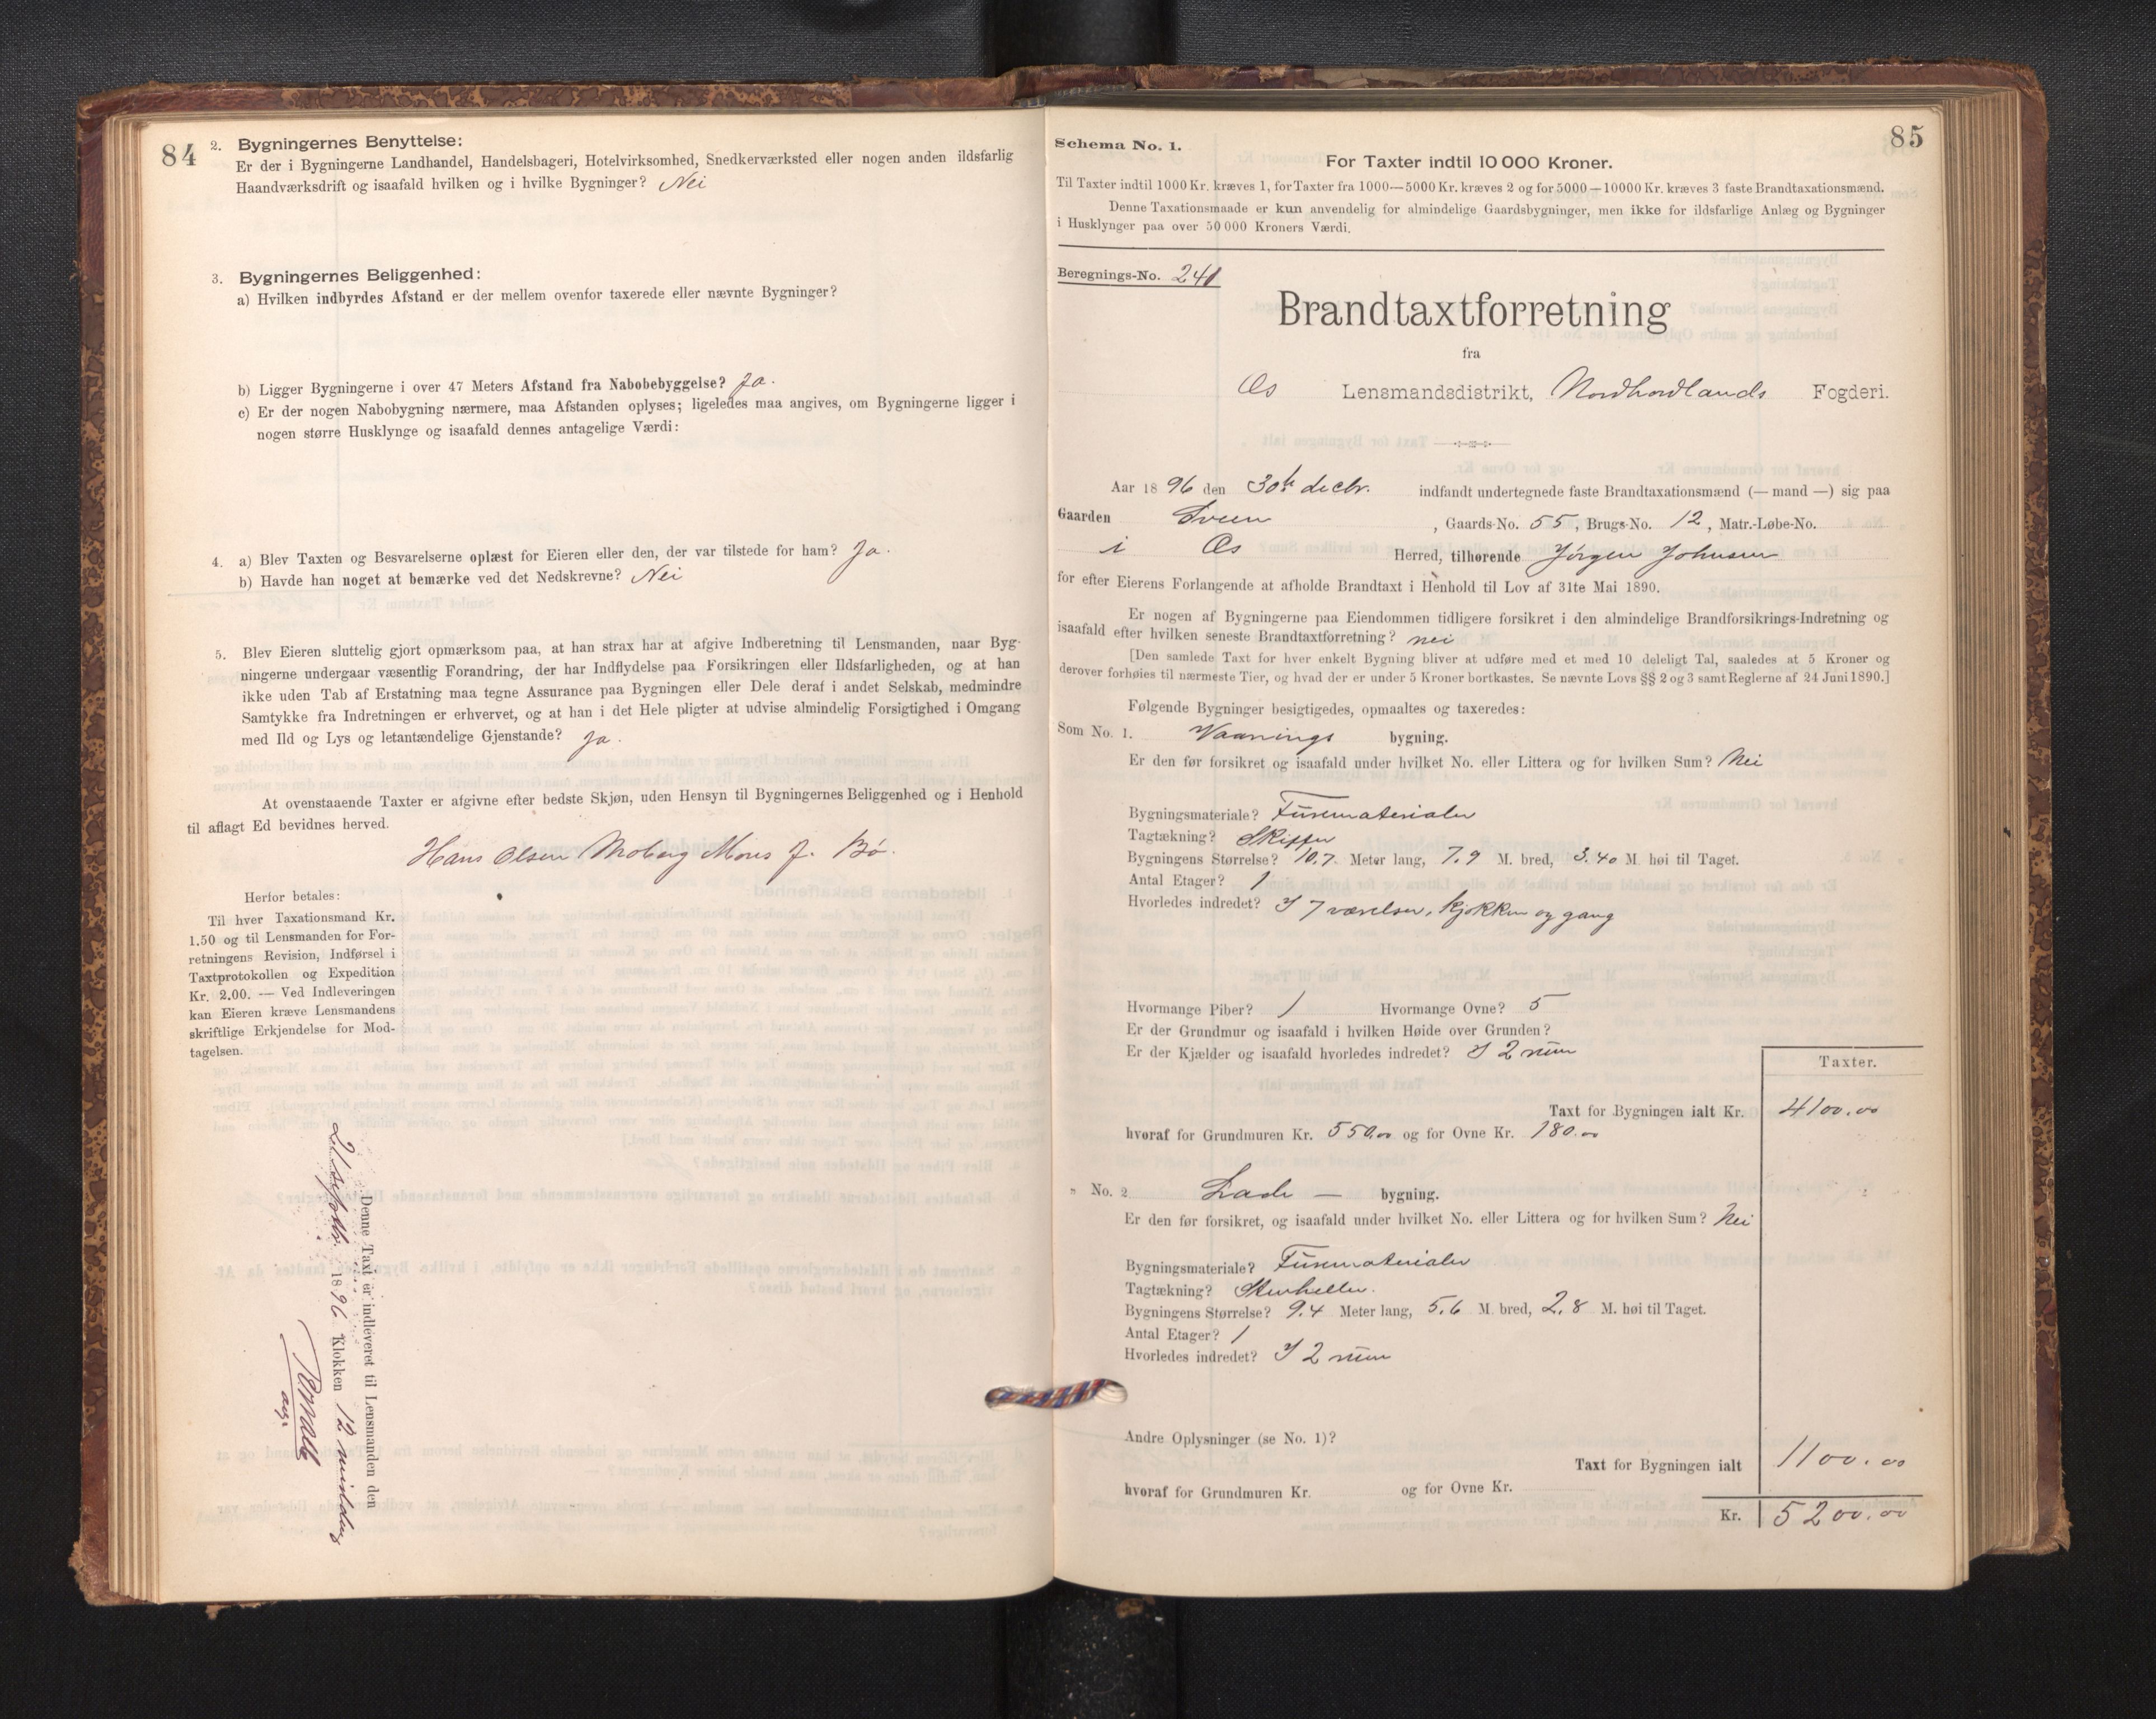 84
2. Bygningernes Benyttelse:
Er der i Bygningerne Landhandel, Handelsbageri, Hotelvirksomhed, Snedkerværksted eller nogen anden ildsfarlig
Haandværksdrift og isaafald hvilken og i hvilke Bygninger? Nei
3. Bygningernes Beliggenhed:
a) Hvilken indbyrdes Afstand er der mellem ovenfor taxerede eller nævnte Bygninger?
b) Ligger Bygningerne i over 47 Meters Afstand fra Nabobebyggelse? Ja.
c) Er der nogen Nabobygning nærmere, maa Afstanden oplyses; ligeledes maa angives, om Bygningerne ligger i
nogen større Husklynge og isaafald dennes antagelige Værdi:
4. a) Blev Taxten og Besvarelserne oplæst for Eieren eller den, der var tilstede for ham? Ja.
b) Havde han noget at bemærke ved det Nedskrevne? Nei
5. Blev Eieren sluttelig gjort opmærksom paa, at han strax har at afgive Indberetning til Lensmanden, naar Byg-
ningerne undergaar væsentlig Forandring, der har Indflydelse paa Forsikringen eller Ildsfarligheden, og at han
ikke uden Tab af Erstatning maa tegne Assurance paa Bygningen eller Dele deraf i andet Selskab, medmindre
Samtykke fra Indretningen er erhvervet, og at han i det Hele pligter at udvise almindelig Forsigtighed i Omgang
med Ild og Lys og letantændelige Gjenstande? Ja.
At ovenstaaende Taxter er afgivne efter bedste Skjøn, uden Hensyn til Bygningernes Beliggenhed og i Henhold
til aflagt Ed bevidnes herved.
Hans Olsen Moberg Mons J. Bø.
Herfor betales:
Til hver Taxationsmand Kr.
1.50 og til Lensmanden for For-
retningens Revision, Indførsel i
Taxtprotokollen og Expedition
Kr. 2.00. — Ved Indleveringen
kan Eieren kræve Lensmandens
skriftlige Erkjendelse for Mod-
tagelsen.
Denne Taxt er indleveret til Lensmanden den
1896 Klokken 12 middag
85
Schema No. 1.
For Taxter indtil 10 000 Kroner.
Til Taxter indtil 1000 Kr. kræves 1, for Taxter fra 1000—5000 Kr. kræves 2 og for 5000—10000 Kr. kræves 3 faste Brandtaxationsmænd.
Denne Taxationsmaade er kun anvendelig for almindelige Gaardsbygninger, men ikke for ildsfarlige Anlæg og Bygninger
i Husklynger paa over 50 000 Kroners Værdi.
Beregnings-No. 241
Brandtaxtforretning
fra
Os Lensmandsdistrikt, Nordhordlands Fogderi.
Aar 1896 den 30te decbr. indfandt undertegnede faste Brandtaxationsmænd (— mand —) sig paa
Gaarden Sveen, Gaards-No. 55, Brugs-No. 12, Matr.-Løbe-No.
i Os Herred, tilhørende Jørgen Johnsen
for efter Eierens Forlangende at afholde Brandtaxt i Henhold til Lov af 31te Mai 1890.
Er nogen af Bygningerne paa Eiendommen tidligere forsikret i den almindelige Brandforsikrings-Indretning og
isaafald efter hvilken seneste Brandtaxtforretning? nei
[Den samlede Taxt for hver enkelt Bygning bliver at udføre med et med 10 deleligt Tal, saaledes at 5 Kroner og
derover forhøies til nærmeste Tier, og hvad der er under 5 Kroner bortkastes. Se nævnte Lovs §§ 2 og 3 samt Reglerne af 24 Juni 1890.]
Følgende Bygninger besigtigedes, opmaaltes og taxeredes:
Som No. 1. Vaanings bygning.
Er den før forsikret og isaafald under hvilket No. eller Littera og for hvilken Sum? Nei
Bygningsmateriale? Furematerialer
Tagtækning? Skiffer
Bygningens Størrelse? 10.7 Meter lang, 7.9 M. bred, 3.40 M. høi til Taget.
Antal Etager? 1
Hvorledes indredet? I 7 værelser, kjøkken og gang
Hvormange Piber? 1 Hvormange Ovne? 5
Er der Grundmur og isaafald i hvilken Høide over Grunden?
Er der Kjælder og isaafald hvorledes indredet? I 2 rum
Taxter.
Taxt for Bygningen ialt Kr. 4100.00
hvoraf for Grundmuren Kr. 550.00 og for Ovne Kr. 180.00
" No. 2 Lade — bygning.
Er den før forsikret, og isaafald under hvilket No. eller Littera og for hvilken Sum? Nei
Bygningsmateriale? Furematerialer
Tagtækning? Stenheller.
Bygningens Størrelse? 9.4 Meter lang, 5.6 M. bred, 2.8 M. høi til Taget.
Antal Etager? 1
Hvorledes indredet? I 2 rum
Andre Oplysninger (se No. 1)?
Taxt for Bygningen ialt 1100.00
hvoraf for Grundmuren Kr. og for Ovne Kr.
Kr. 5200.00